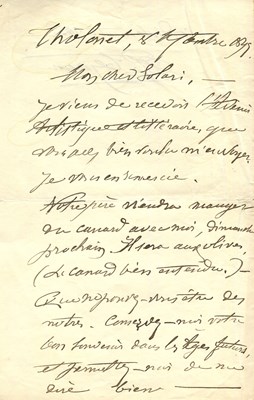 Tholonet, 8 septembre 1897.
Mon cher Solari, —
Je viens de recevoir l'Art
Artistique et littéraire, que
vous avez bien voulu m'envoyer.
Je vous en remercie.
Votre père viendra manger
du canard avec moi, dimanche
prochain. Il sera aux olives
(Le canard bien entendu.) —
Que ne pouvez-vous être des
nôtres. Conservez-moi votre
bon souvenir dans les âges futurs,
et permettez-moi de me
dire bien —